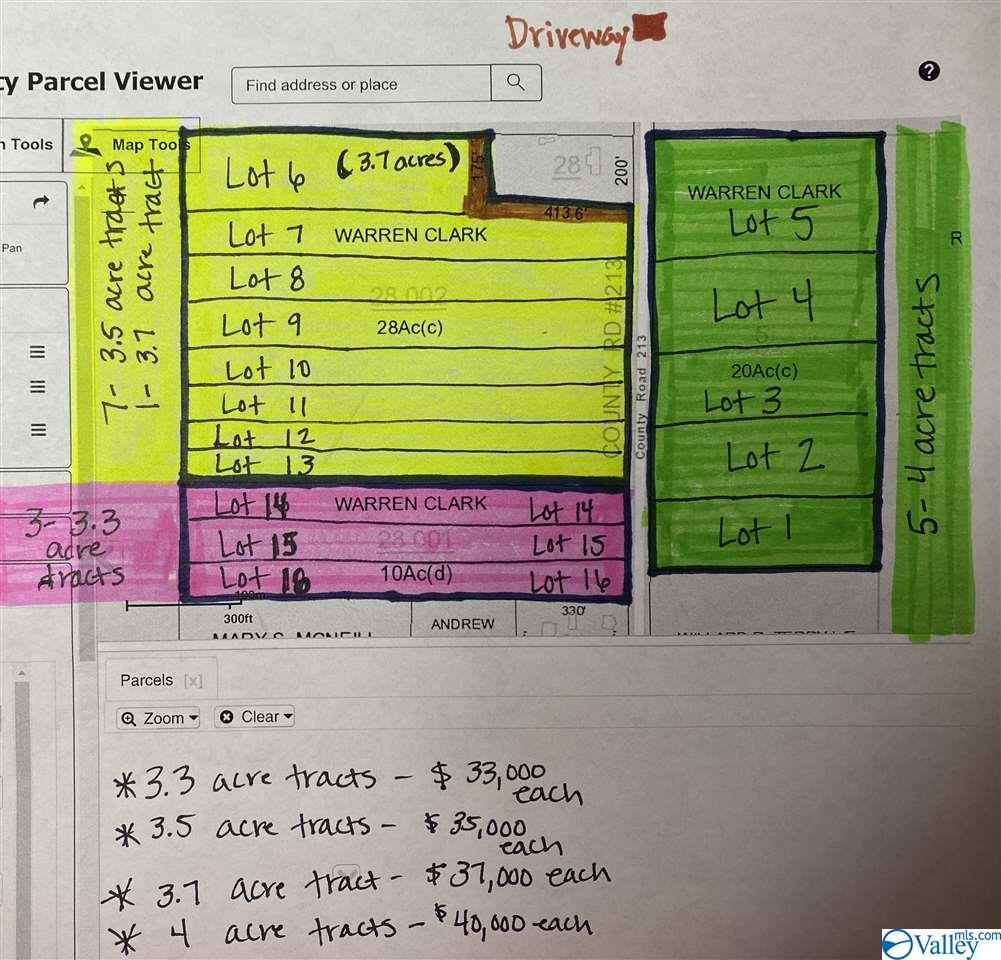 Driveway
ty Parcel Viewer
Find address or place
?
n Tools
Map Tools
Pan
7 - 3.5 acre tracts
1 - 3.7 acre tract
Lot 6 (3.7 acres)
175'
28
200'
413.6'
Lot 7 WARREN CLARK
Lot 8
28.002
Lot 9 28Ac(c)
Lot 10
Lot 11
Lot 12
Lot 13
COUNTY RD #213
County Road 213
WARREN CLARK
Lot 5
Lot 4
5
20Ac(c)
Lot 3
Lot 2
Lot 1
R
5- 4 acre tracts
3- 3.3
acre
tracts
Lot 14 WARREN CLARK Lot 14
Lot 15 28.001 Lot 15
Lot 16 10Ac(d) Lot 16
100m
300ft
ANDREW
330'
MARY S. MCNEILL
Parcels [x]
Zoom Clear
* 3.3 acre tracts - $ 33,000
each
* 3.5 acre tracts - $ 35,000
each
* 3.7 acre tract - $37,000 each
* 4 acre tracts - $40,000 each
Valleymls.com